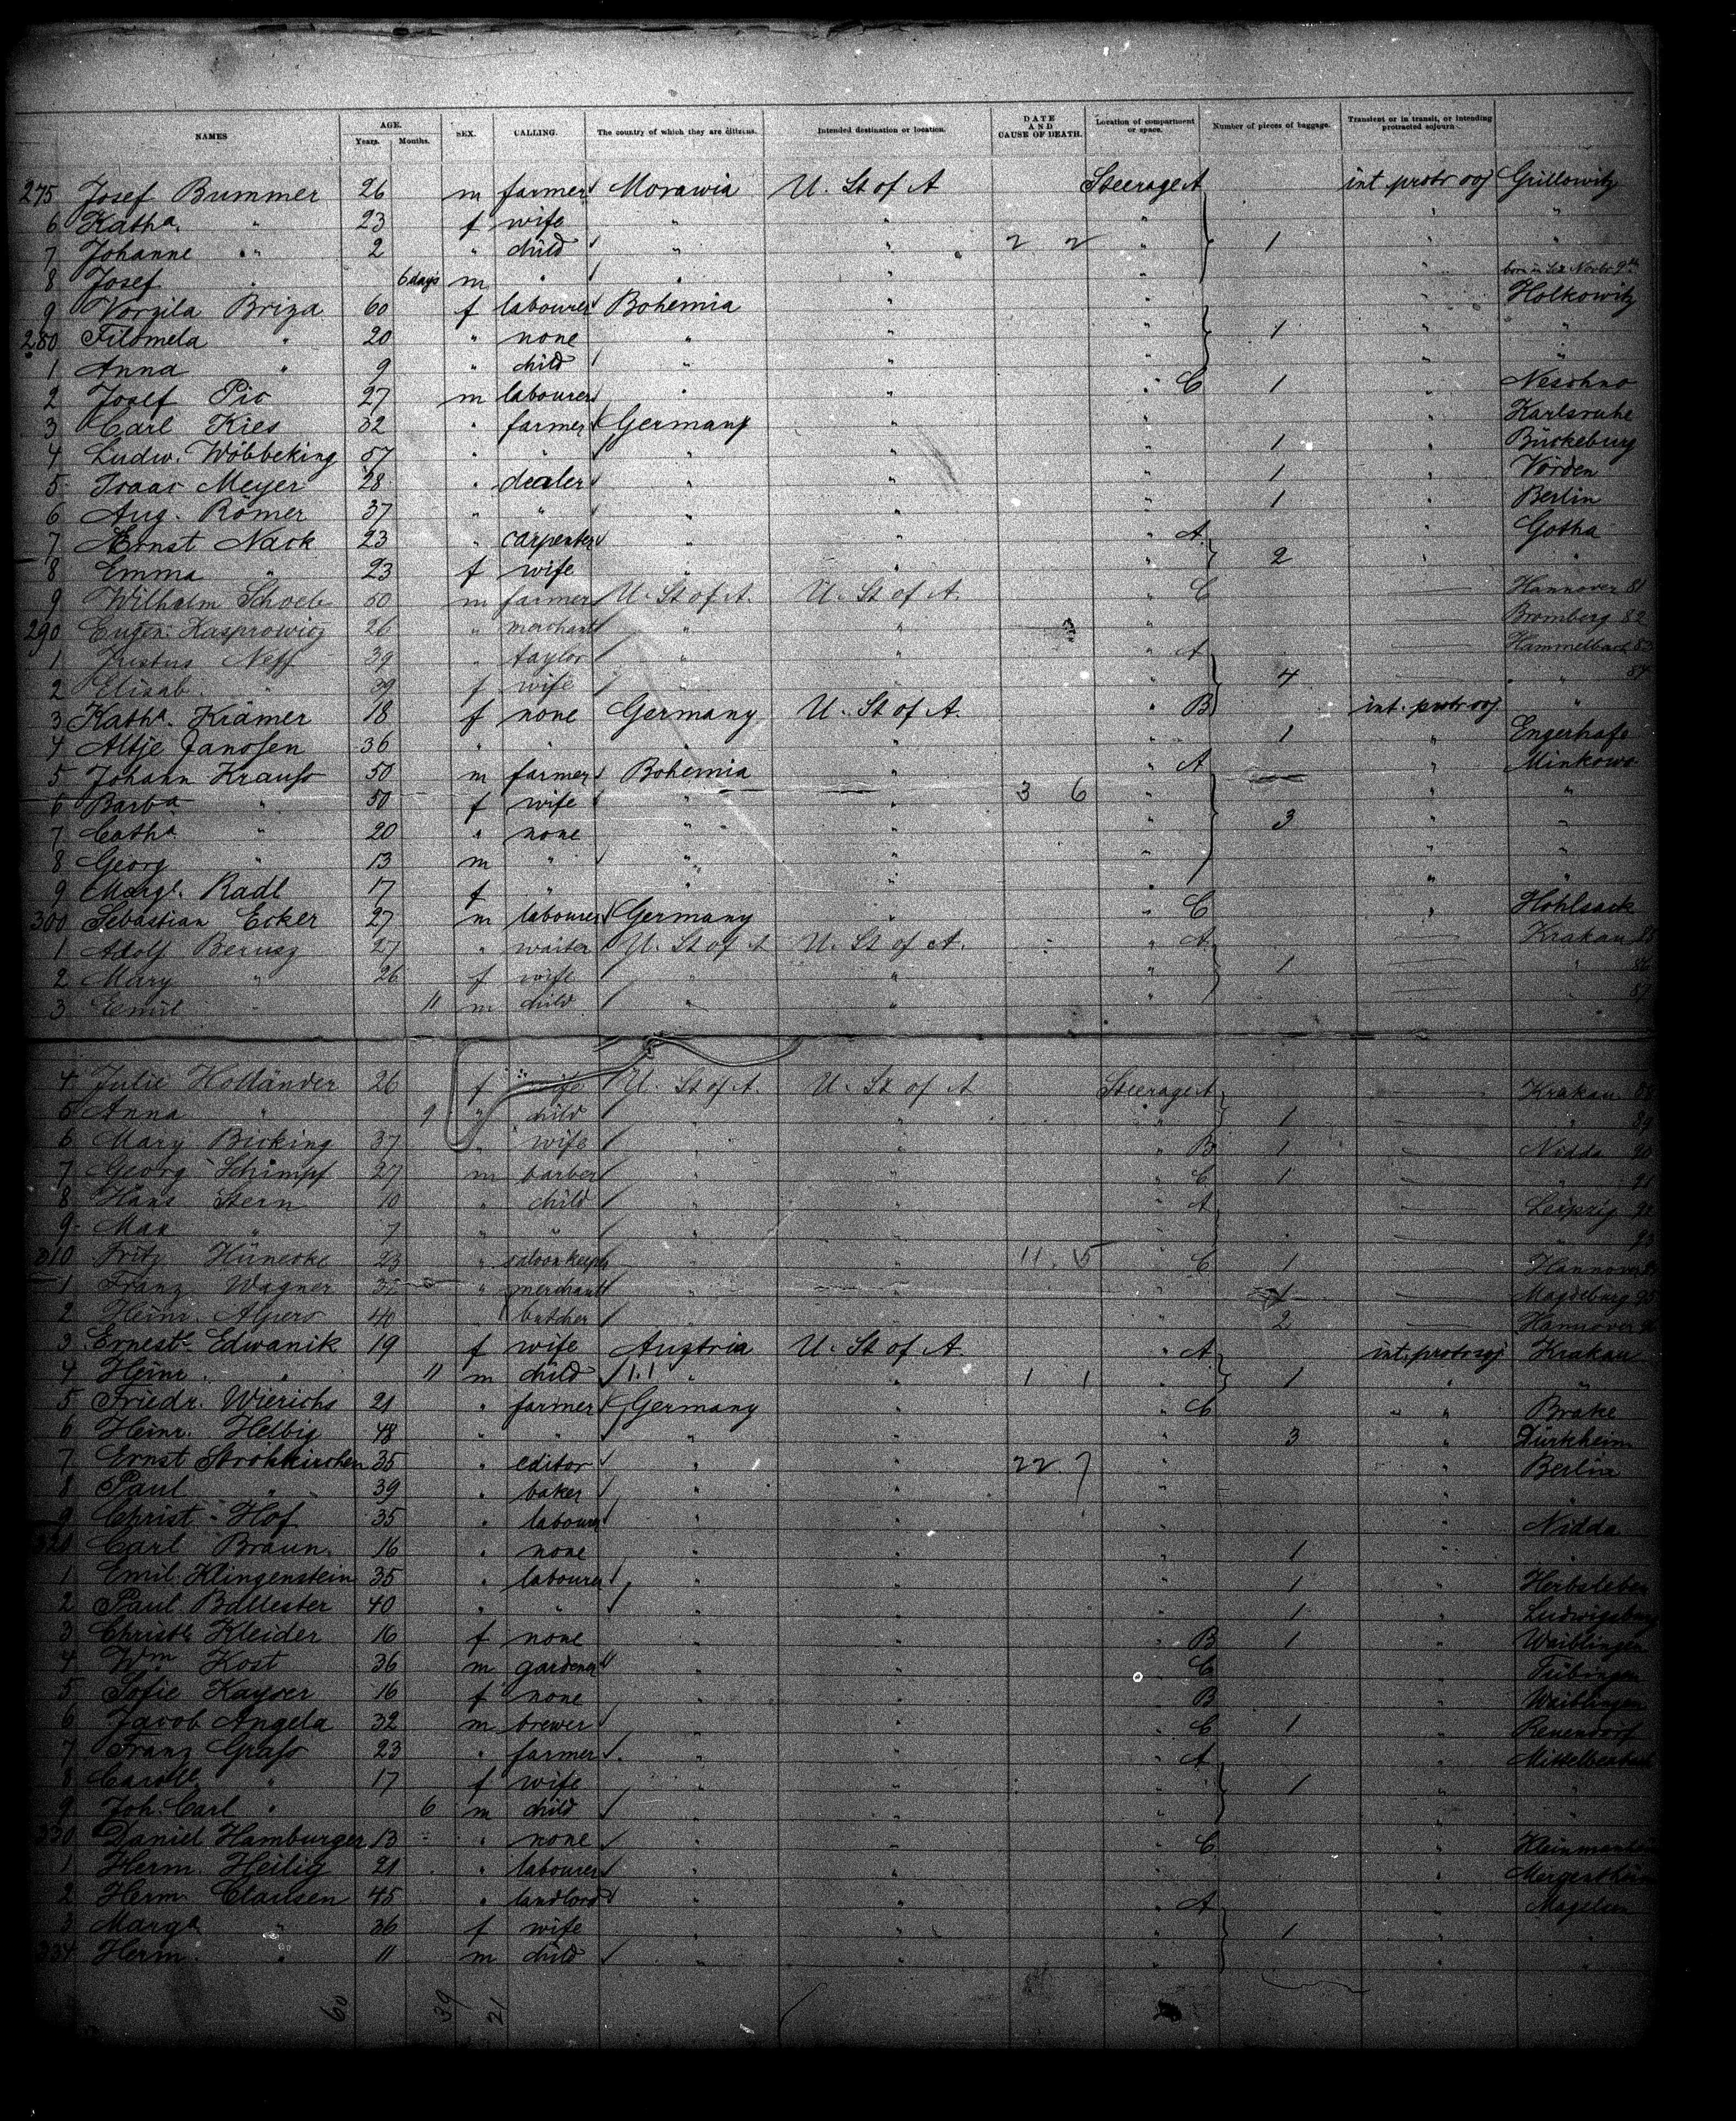 NAMES AGE. Years. Months. SEX. CALLING. The country of which they are citizens. Intended destination or location. DATE AND CAUSE OF DEATH. Location of compartment or space. Number of pieces of baggage. Transient or in transit, or intending protracted sojourn
275 Josef Bummer 26 m farmer Morawia U. St of A Steerage A int protr soj Grillowitz
6 Katha. " 23 f wife " " " " "
7 Johanne " 2 " child " " 2 2 " 1 " "
8 Josef " 6 days m " " " " " born in See Novbr 9th
9 Vorzila Briza 60 f labourer Bohemia " " " Holkowitz
280 Filomela " 20 " none " " " 1 " "
1 Anna " 9 " child " " " " "
2 Josef Pic 27 m labourer " " " C 1 " Neschno
3 Carl Kies 32 " farmer Germany " " " Karlsruhe
4 Ludw. Wöbbeking 57 " " " " " 1 " Bückeburg
5 Isaac Meyer 28 " dealer " " " 1 " Vörden
6 Aug. Römer 37 " " " " " 1 " Berlin
7 Ernst Nack 23 " carpenter " " " A " Gotha
8 Emma " 23 f wife " " " 2 " "
9 Wilhelm 50 m farmer U. St of A. U. St of A. " C — Hannover 81
290 Eugen Kasprowicz 26 " merchant " " — Bromberg 82
1 Justus Neff 39 " taylor " " " A — Hammelbach 83
2 Elisab. " 39 f wife " " " 4 — " 84
3 Katha. Krämer 18 f none Germany U. St of A. " B int. protr soj "
4 Altje Janssen 36 " " " " " 1 " Engerhafe
5 Johann Krauss 50 m farmer Bohemia " " A " Minkowo
6 Barba " 50 f wife " " 3 6 " " "
7 Catha " 20 " none " " " 3 " "
8 Georg " 13 m " " " " " "
9 Margt. Radl 17 f " " " " " "
300 Sebastian Ecker 27 m labourer Germany " " C " Hohlsack
1 Adolf Berusz 27 " waiter U. St of A U. St of A. " A — Krakau 85
2 Mary " 26 f wife " " " 1 — " 86
3 Emil " 11 m child " " " — " 87
4 Julie Holländer 26 f wife U. St of A. U. St of A Steerage A Krakau 88
5 Anna " 9 " child " " " 1 — " 89
6 Mary Bicking 37 " wife " " " B 1 — Nidda 90
7 Georg Schimpf 27 m barber " " " C 1 — " 91
8 Hans Stern 10 " child " " " A — Leipzig 92
9 Max " 7 " " " " " — " 93
310 Fritz Hünecke 23 " saloonkeeper " " 11 15 " C 1 — Hannover
1 Franz Wagner " merchant " " " 1 — Magdeburg 95
2 Heinr. Alpers 40 " butcher " " " 2 — Hannover
3 Erneste Edwanik 19 f wife Austria U. St of A. " A int. protr soj Krakau
4 Heinr. " 11 m child " " 1 1 " 1 " "
5 Friedr. Wierichs 21 " farmer Germany " " C " " Brake
6 Heinr. Helbig 48 " " " " " 3 Dürkheim
7 Ernst Strohkirchen 35 " editor " " 22 7 " " Berlin
8 Paul " 39 " baker " " " " "
9 Christ. Hof 35 " labourer " " " " Nidda
320 Carl Braun. 16 " none " " " 1 " "
1 Emil Klingenstein 35 " labourer " " " 1 " Herbsleben
2 Paul 40 " " " " " 1 " Ludwigsburg
3 Christe Kleider 16 f none " " " B 1 " Waiblingen
4 Wm Kost 36 m gardener " " " C " Tübingen
5 Sofie Kayser 16 f none " " " B " Waiblingen
6 Jacob Angela 32 m brewer " " " C 1 "
7 Franz Grafs 23 " farmer " " " A "
8 " 17 f wife " " " 1 " "
9 Joh. Carl " 6 m child " " " " "
330 Daniel Hamburger 13 " none " " " C "
1 Herm. Heilig 21 " labourer " " " "
2 Herm. Clausen 45 " landlord " " " A " Magelsen
3 Marga " 36 f wife " " " 1 " "
334 Herm. " 11 m child " " " " "
60 39 21